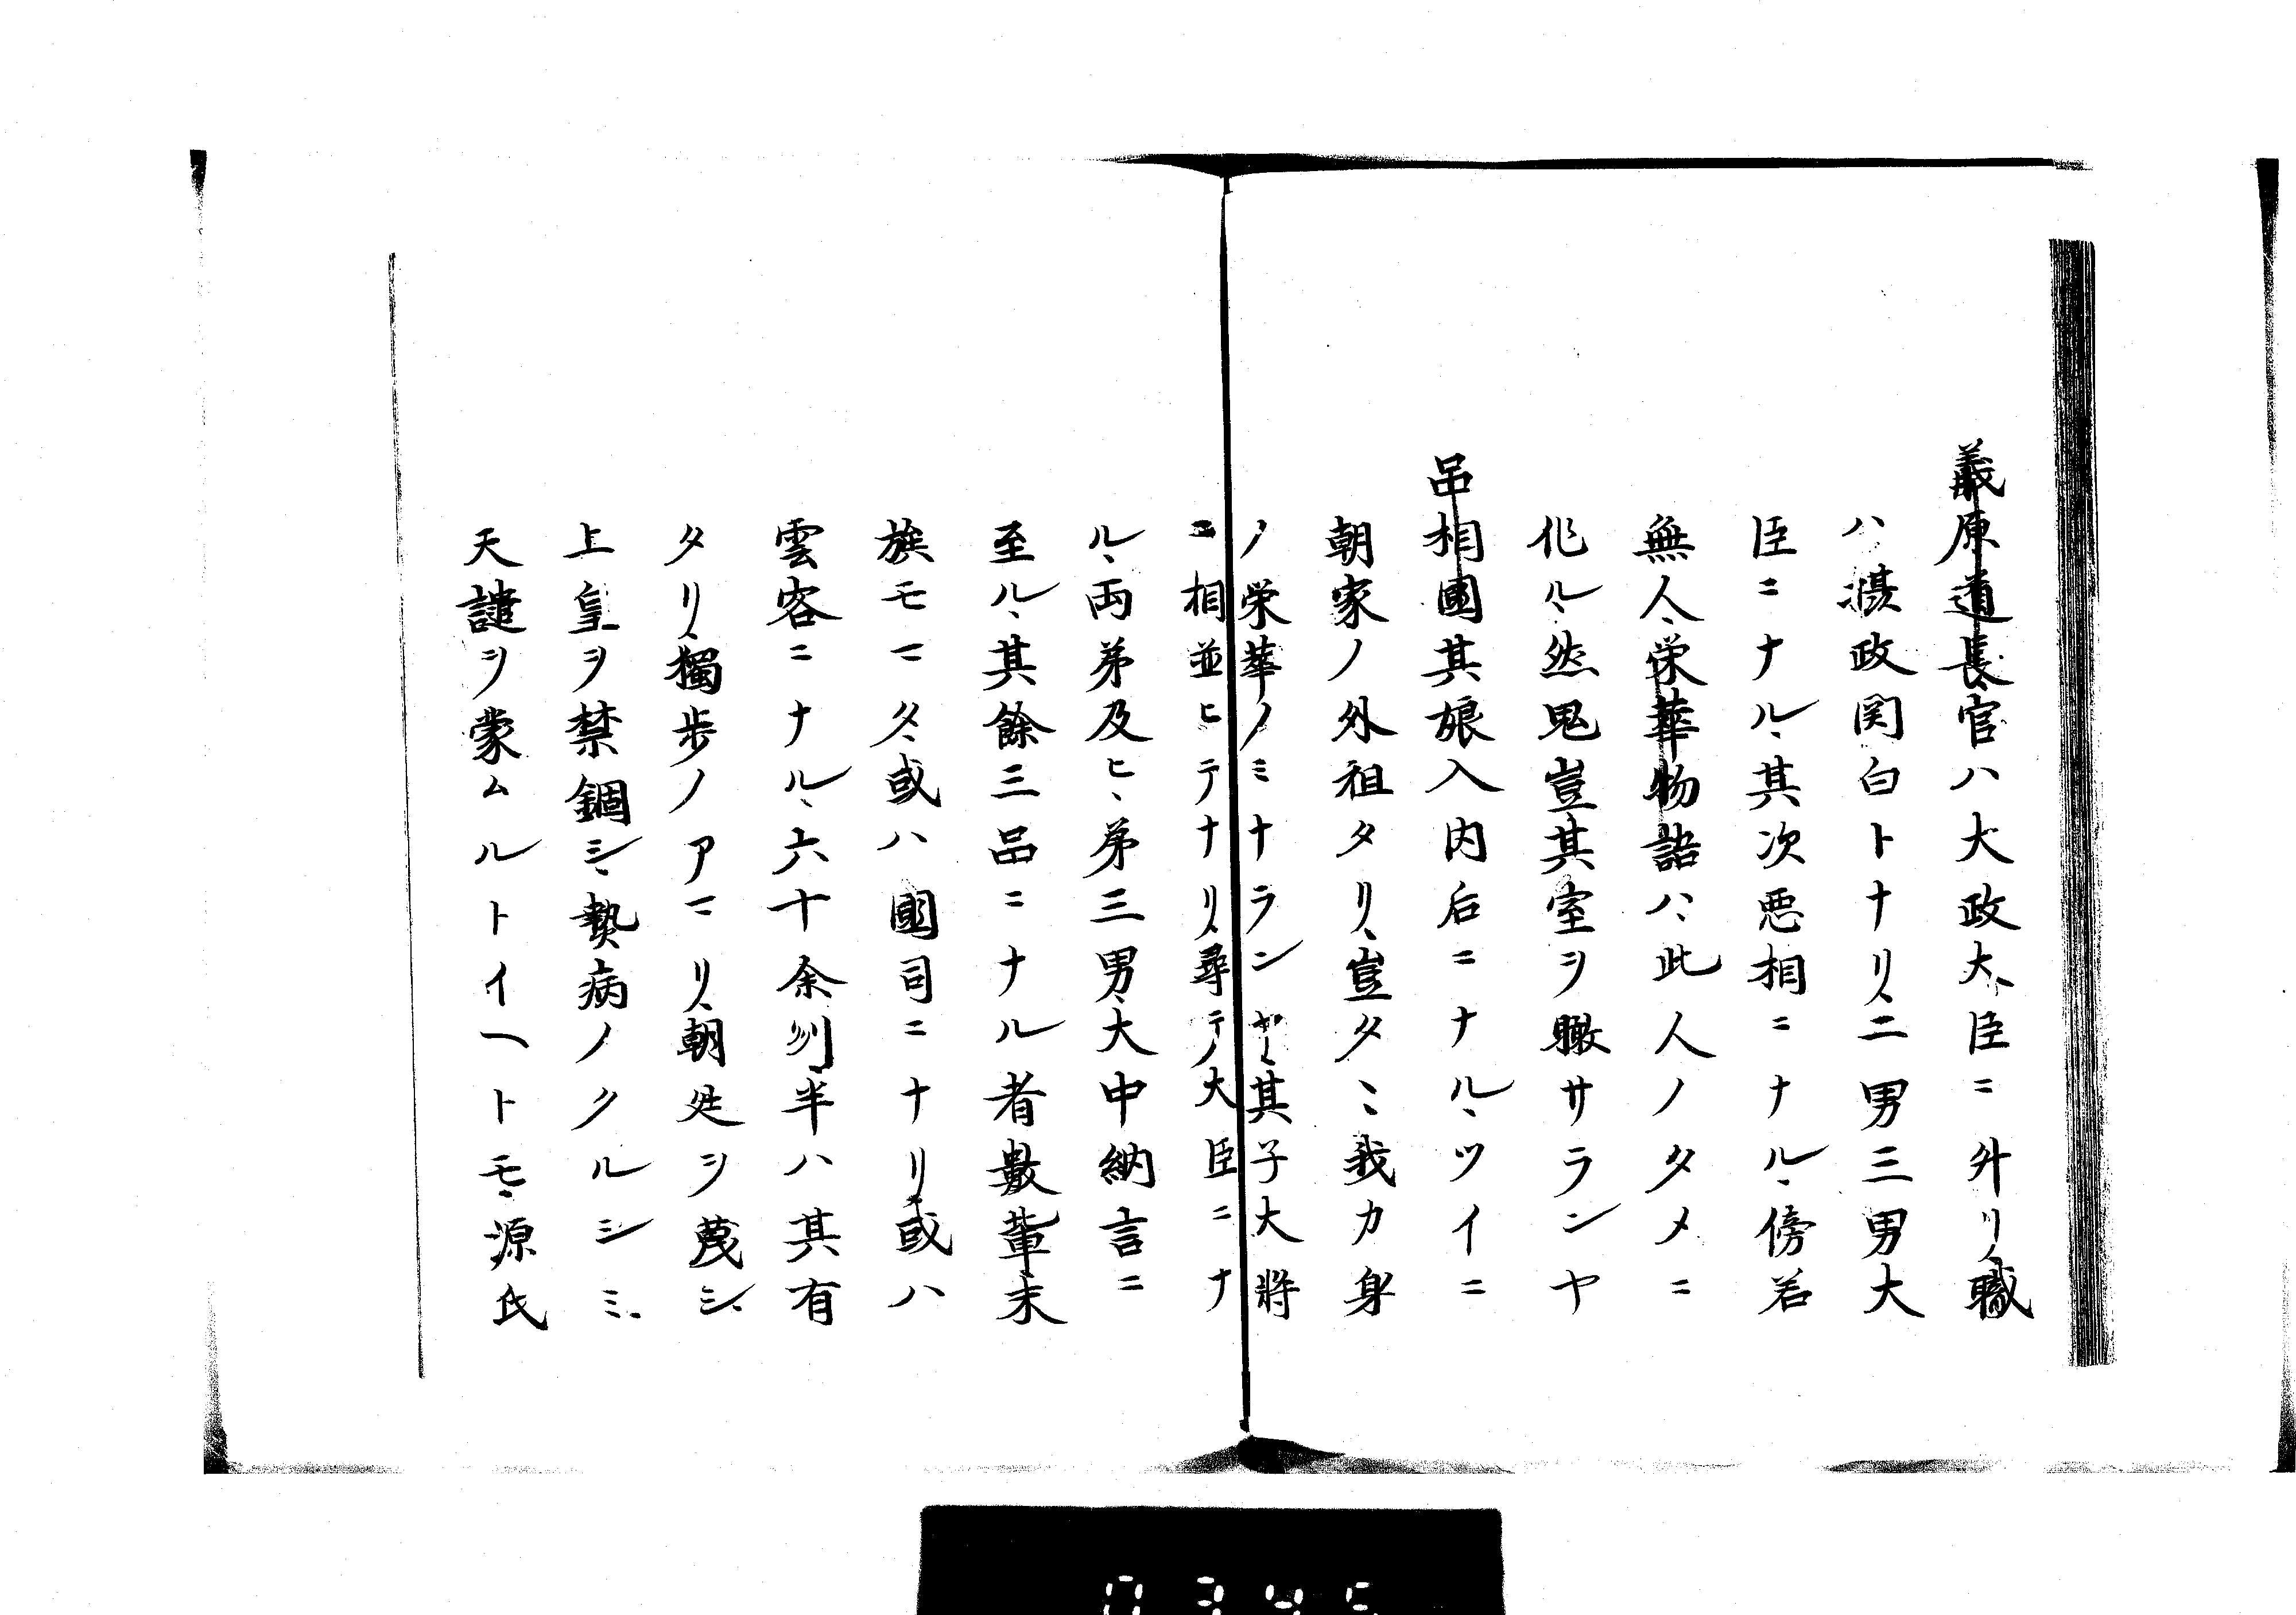 藤原道長官ハ大政大臣ニ升リ職
ハ攝政関白トナリ二男三男大
臣ニナル其次悪相ニナル傍若
無人榮華物語ハ此人ノタメニ
作ル然鬼豈其室ヲ瞰サランヤ
平相國其娘入内后ニナルツイニ
朝家ノ外祖タリ豈タヽ我カ身
ノ栄華ノミナランヤ其子大將
ニ相並ヒテナリ尋テノ大臣ニナ
ル両弟及ヒ弟三男大中納言ニ
至ル其餘三品ニナル者數輩末
族モマタ或ハ國司ニナリ或ハ
雲客ニナル六十余州半ハ其有
タリ獨歩ノアマリ朝廷ヲ蔑シ
上皇ヲ禁錮シ𫝆病ノクルシミ
天譴ヲ蒙ムルトイヘトモ源氏
0345